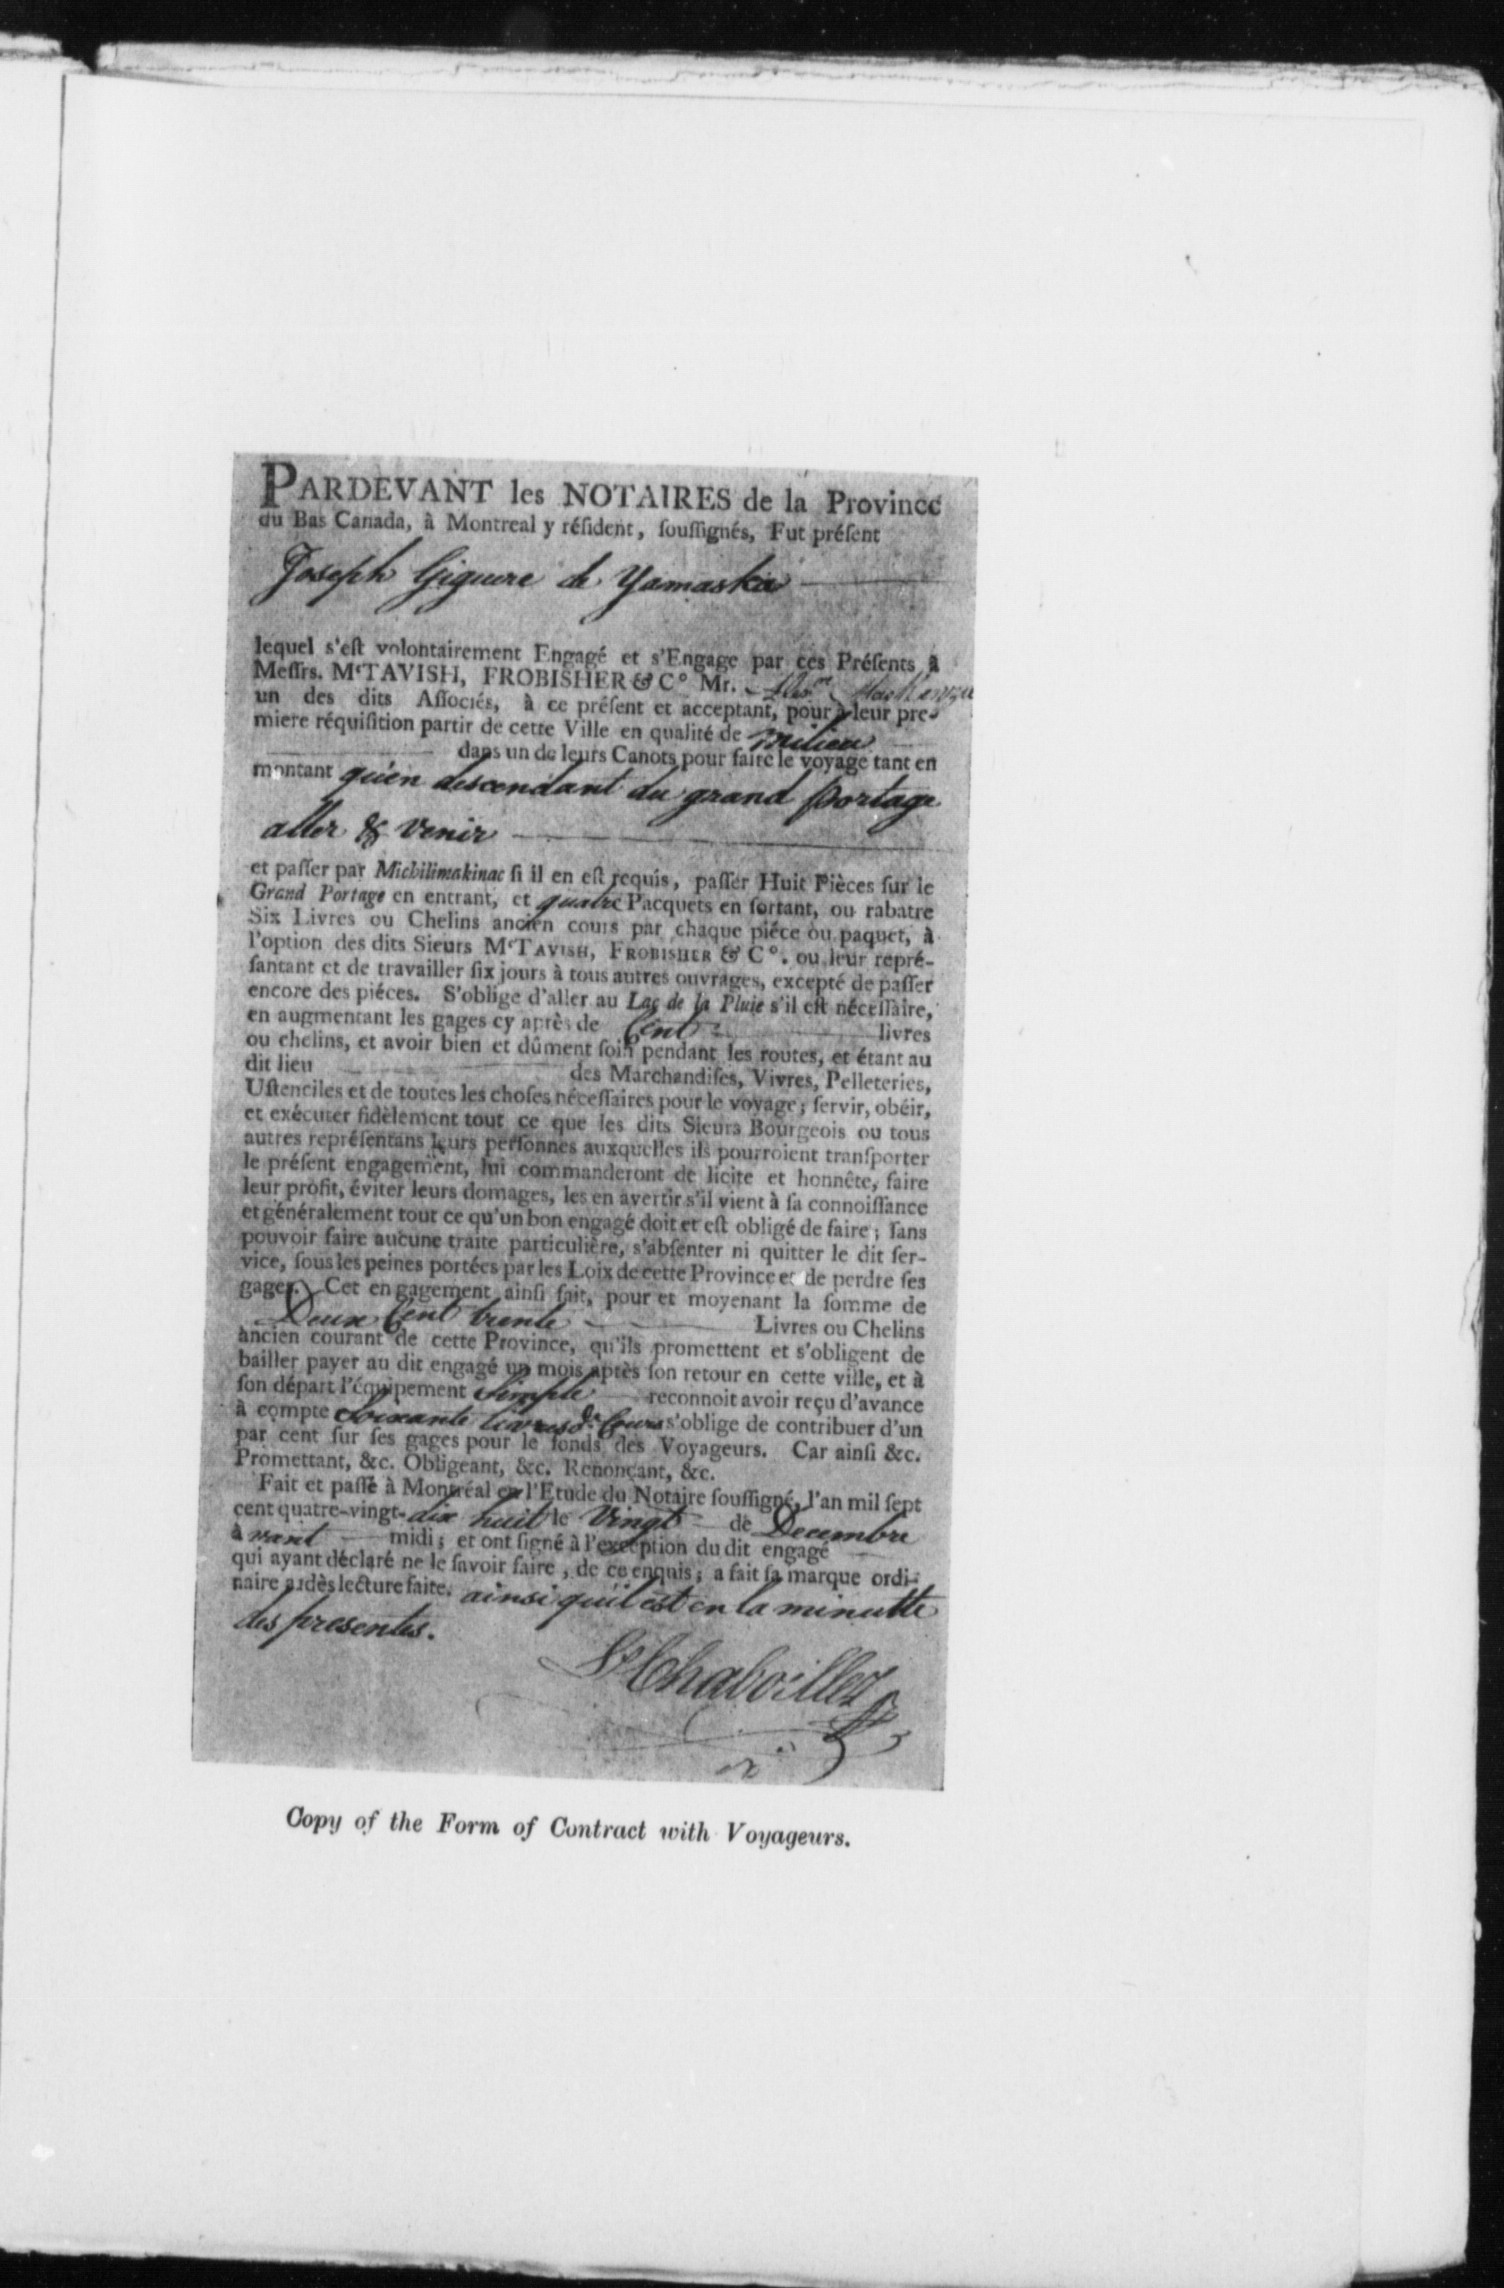 PARDEVANT les NOTAIRES de la Province
du Bas Canada, à Montreal y réſident, ſouſſignés, Fut préſent
Joseph Giguere de Yamaska
lequel s'eſt volontairement Engagé et s'Engage par ces Préſents à
Meſſrs. McTAVISH, FROBISHER & Co. Mr. Alexr. MacKenzie
un des dits Aſſociés, à ce préſent et acceptant, pour à leur pre-
miere réquiſition partir de cette Ville en qualité de milieu
dans un de leurs Canots pour faire le voyage tant en
montant qu'en descendant du grand portage
aller & venir
et paſſer par Michilimakinac ſi il en eſt requis, paſſer Huit Pièces ſur le
Grand Portage en entrant, et quatre Pacquets en ſortant, ou rabatre
Six Livres ou Chelins ancien cours par chaque piéce ou paquet, à
l'option des dits Sieurs McTAVISH, FROBISHER & Co. ou leur repré-
ſantant et de travailler ſix jours à tous autres ouvrages, excepté de paſſer
encore des piéces. S'oblige d'aller au Lac de la Pluie s'il eſt néceſſaire,
en augmentant les gages cy après de Cent livres
ou chelins, et avoir bien et dûment ſoin pendant les routes, et étant au
dit lieu des Marchandiſes, Vivres, Pelleteries,
Uſtenciles et de toutes les choſes néceſſaires pour le voyage; ſervir, obéir,
et exécuter fidèlement tout ce que les dits Sieurs Bourgeois ou tous
autres repréſentans leurs perſonnes auxquelles ils pourroient tranſporter
le préſent engagement, lui commanderont de licite et honnête, faire
leur profit, éviter leurs domages, les en avertir s'il vient à ſa connoiſſance
et généralement tout ce qu'un bon engagé doit et eſt obligé de faire; ſans
pouvoir faire aucune traite particulière, s'abſenter ni quitter le dit ſer-
vice, ſous les peines portées par les Loix de cette Province et de perdre ſes
gages. Cet engagement ainſi fait, pour et moyenant la ſomme de
Deux Cent trente Livres ou Chelins
ancien courant de cette Province, qu'ils promettent et s'obligent de
bailler payer au dit engagé un mois après ſon retour en cette ville, et à
ſon départ l'équipement Simple reconnoit avoir reçu d'avance
à compte Soixante livres dr. Cours s'oblige de contribuer d'un
par cent ſur ſes gages pour le fonds des Voyageurs. Car ainſi &c.
Promettant, &c. Obligeant, &c. Renonçant, &c.
Fait et paſſé à Montréal en l'Etude du Notaire ſouſſigné, l'an mil ſept
cent quatre-vingt-dix huit le Vingt de Decembre
à vant midi; et ont ſigné à l'exception du dit engagé
qui ayant déclaré ne le ſavoir faire, de ce enquis; a fait ſa marque ordi-
naire a dès lecture faite. ainsi qu'il est en la minutte
des presentes.
Chaboillez
Copy of the Form of Contract with Voyageurs.